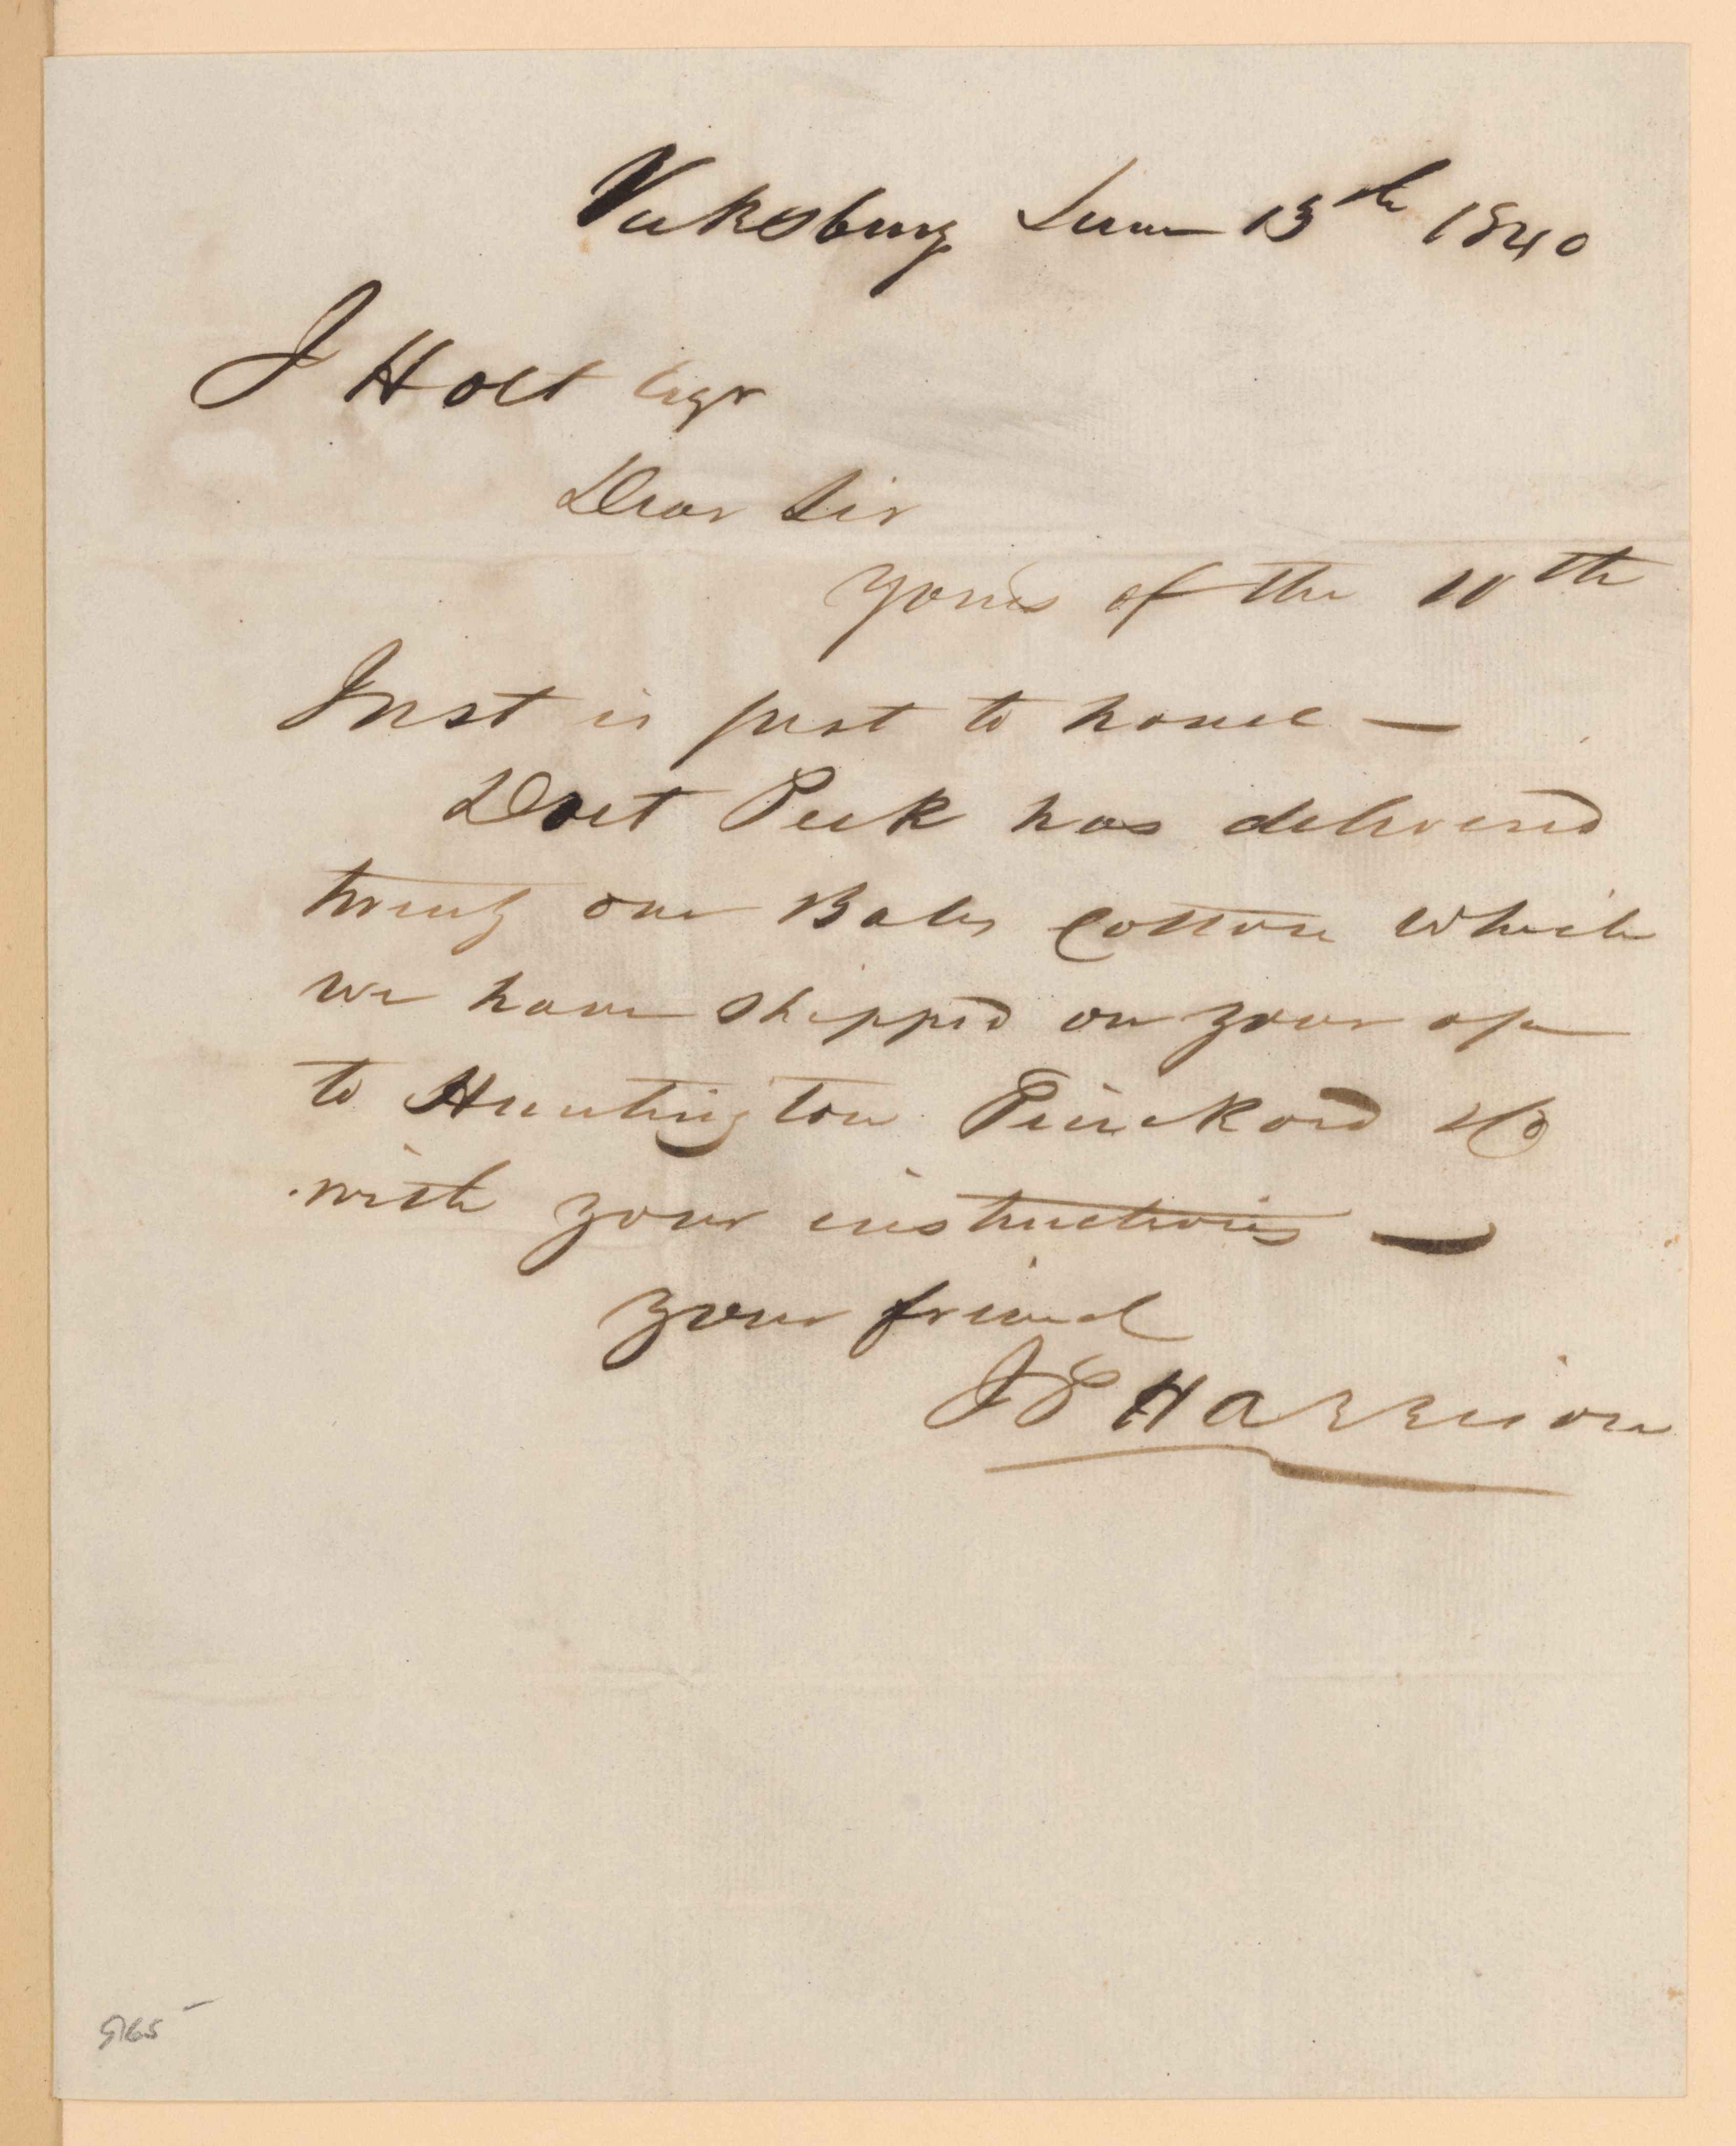 Vicksburg June 13th 1840
J Holt Esqr
Dear Sir
yours of the 10th
Inst is just to hand —
Doct Peck has delivered
twenty one Bales Cotton which
we have shipped on your a/c
to Huntington Pinckard & Co
with your instructions —
your friend
J E Harrison